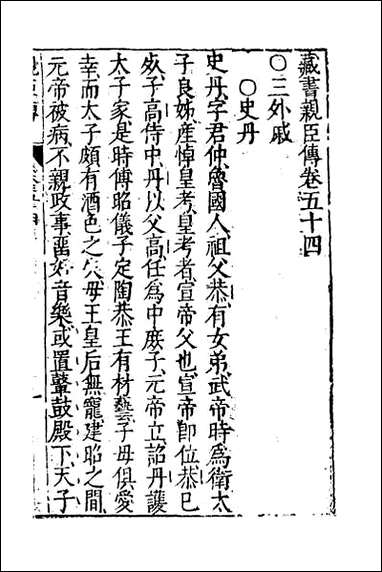 藏書親臣傳卷五十四
○三外戚
○史丹
史丹字君仲魯國人祖父恭有女弟武帝時爲衛太
子良娣産悼皇考皇考者宣帝父也宣帝卽位恭已
死子高侍中丹以父高任爲中庶子元帝立詔丹護
太子家是時傅昭儀子定陶恭王有材藝子母俱愛
幸而太子頗有酒色之失母王皇后無寵建昭之間
元帝被病不親政事畱好音樂或置鼙鼓殿下天子